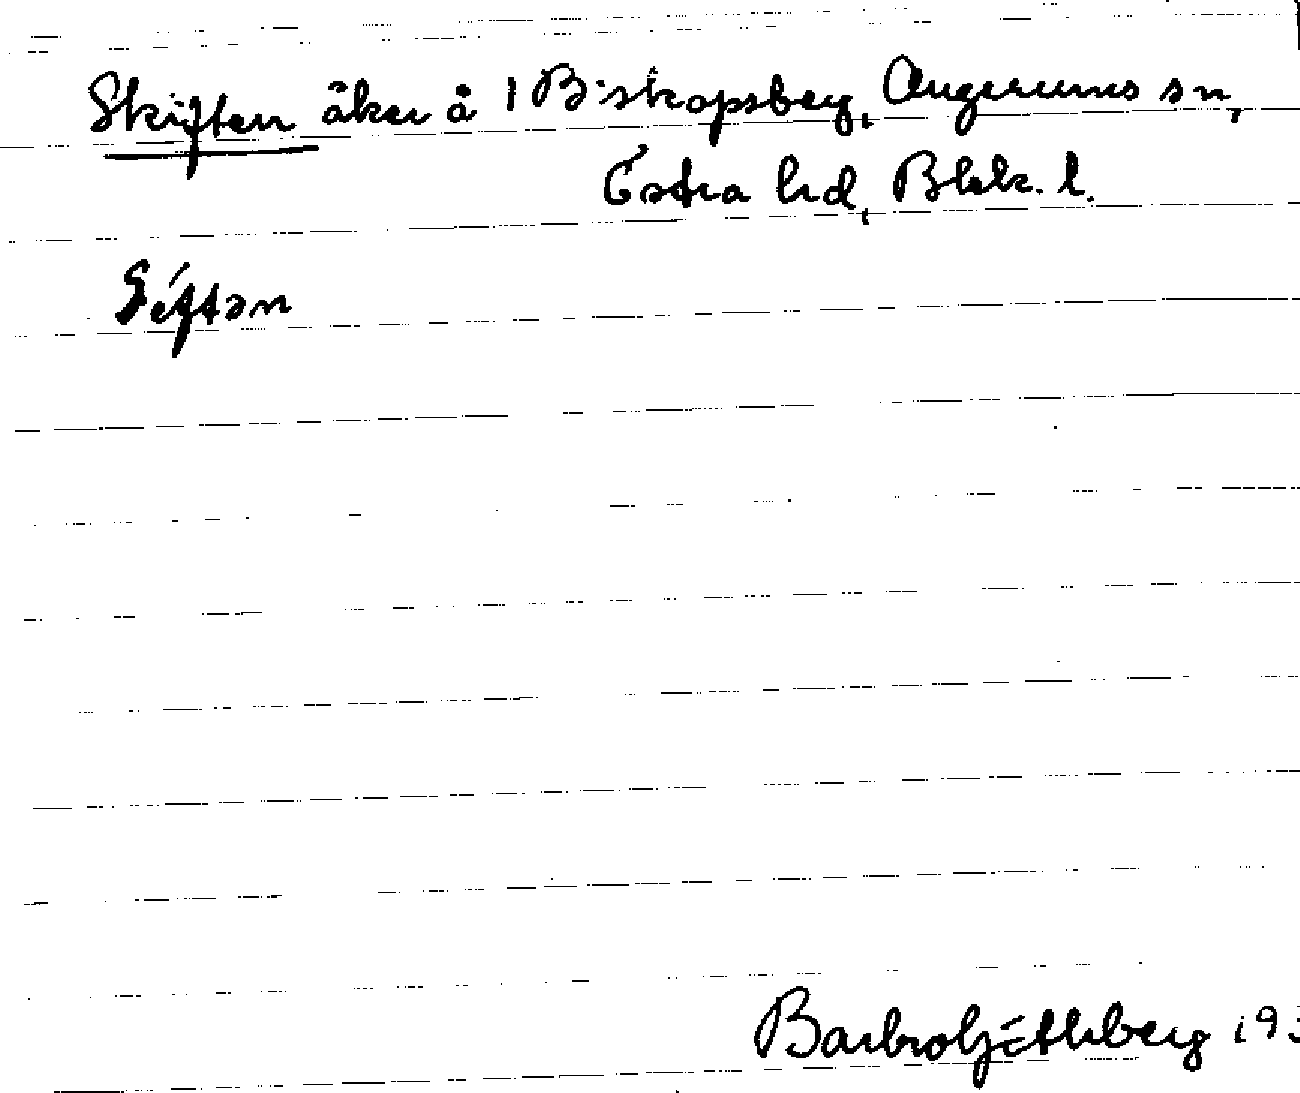 Skiften åker å 1 Biskopsberg, Augerums sn,
Östra hd, Blek. l.
Barbro Göthberg 193